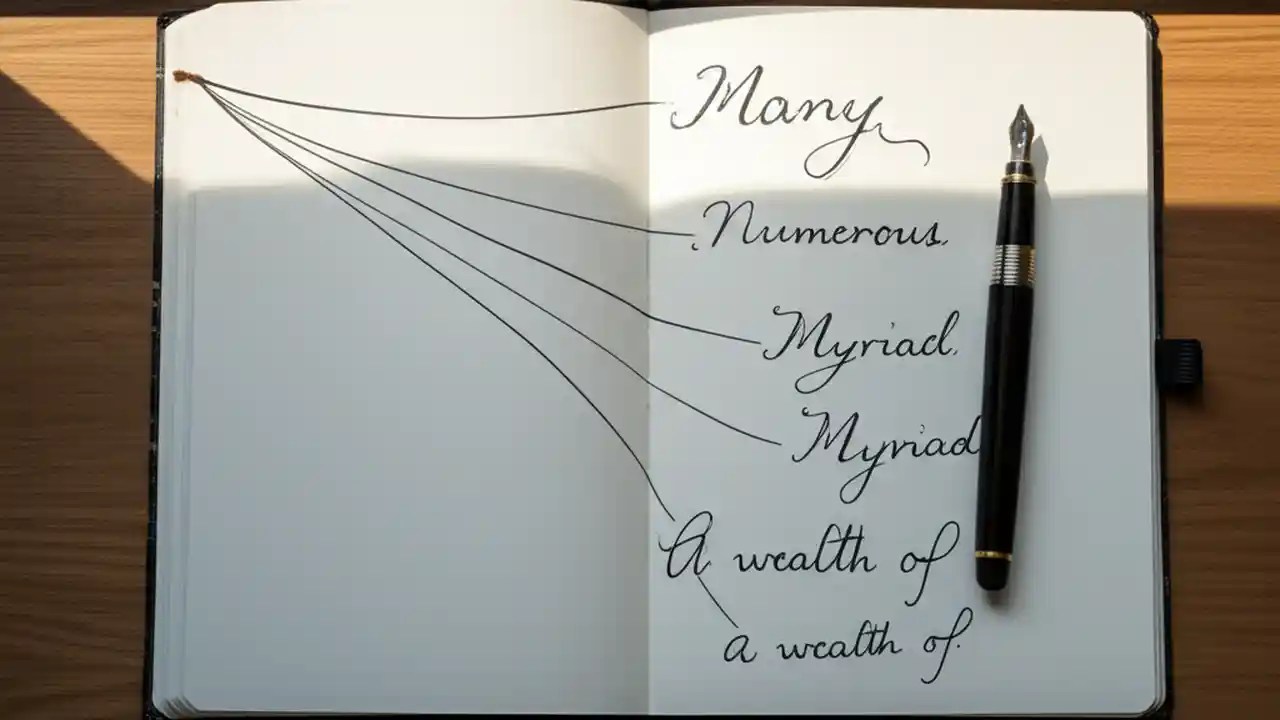 Many
Numerous.
Myriad.
Myriad
A wealth of
a wealth of.